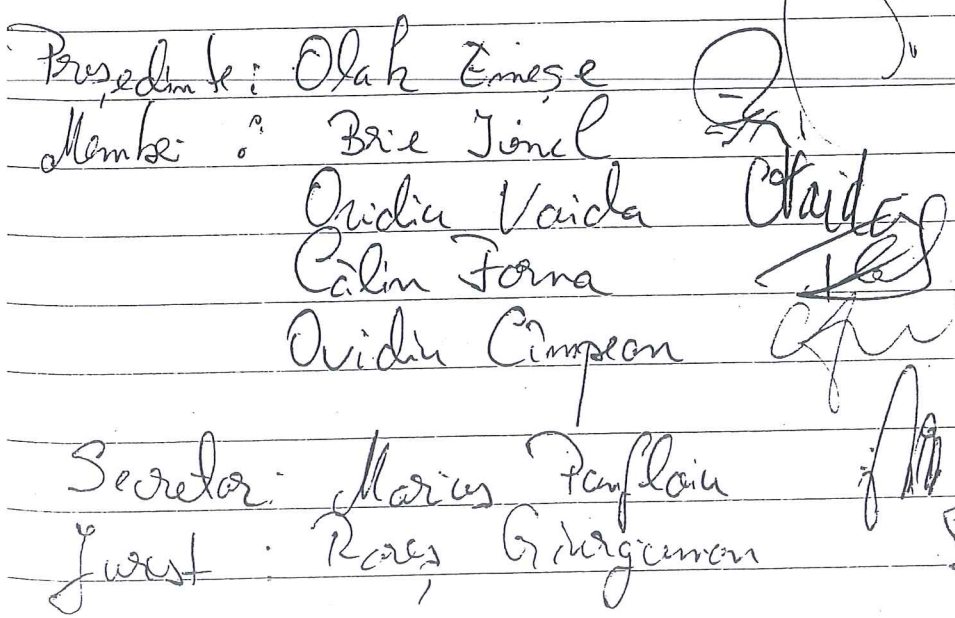 Președinte: Olah Emeșe
Membri: Brie Ionel
Ovidiu Vaida
Călin Forna
Ovidiu Cîmpean
Secretar: Marius Panfloiu
Jurist: Rareș